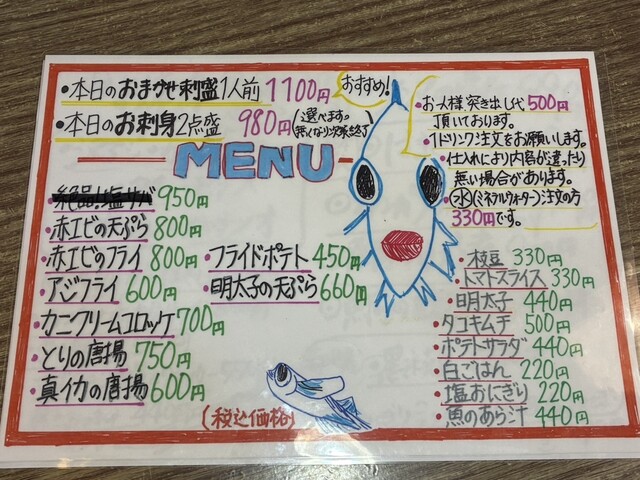 ・本日のおまかせ刺盛1人前 1100円
おすすめ!
・本日のお刺身2点盛 980円
選べます。
無くなり次第終了
MENU
・お一人様 突き出し代500円
頂いております。
・1ドリンク注文をお願いします。
・仕入れにより内容が違ったり
無い場合があります。
・水(ミネラルウォーター)注文の方
330円です。
・絶品!塩サバ 950円
・赤エビの天ぷら 800円
・赤エビのフライ 800円
・アジフライ 600円
・カニクリームコロッケ 700円
・とりの唐揚 750円
・真イカの唐揚 600円
・フライドポテト 450円
・明太子の天ぷら 660円
・枝豆 330円
・トマトスライス 330円
・明太子 440円
・タコキムチ 500円
・ポテトサラダ 440円
・白ごはん 220円
・塩おにぎり 220円
・魚のあら汁 440円
(税込価格)